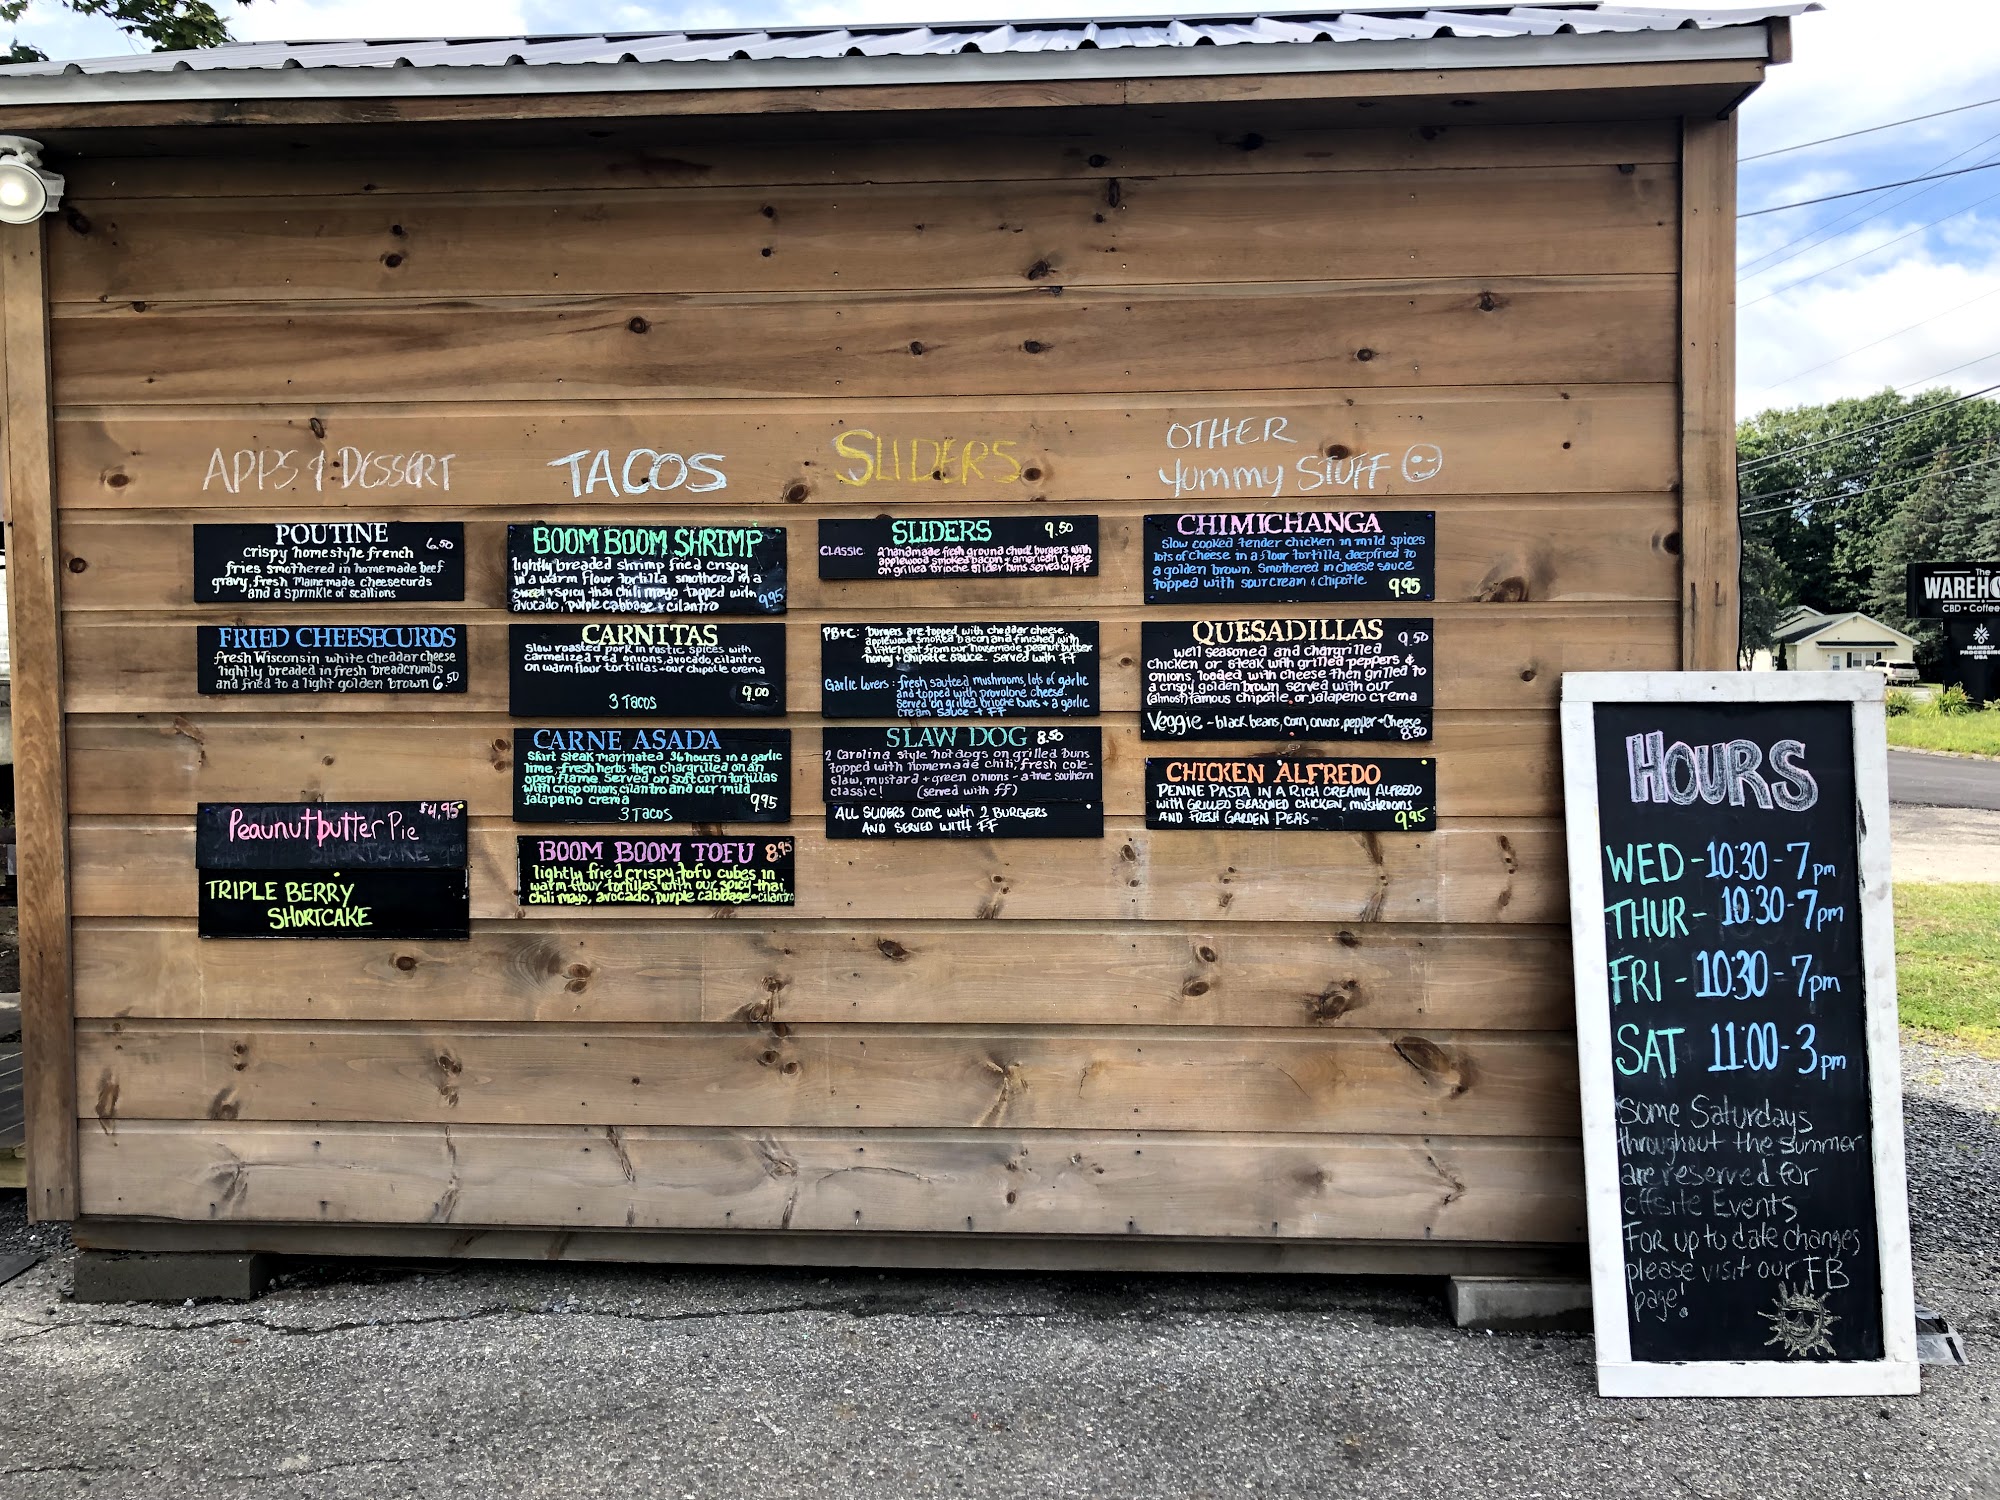 APPS & DESSERT
POUTINE
6.50
crispy homestyle french
fries smothered in homemade beef
gravy, fresh Maine made cheesecurds
and a sprinkle of scallions
FRIED CHEESECURDS
fresh Wisconsin white cheddar cheese
lightly breaded in fresh breadcrumbs
and fried to a light golden brown 6.50
$4.95
Peaunutbutter Pie
SHORTCAKE
TRIPLE BERRY
SHORTCAKE
TACOS
BOOM BOOM SHRIMP
lightly breaded shrimp fried crispy
in a warm flour tortilla smothered in a
sweet + spicy thai chili mayo topped with
avocado, purple cabbage + cilantro
9.95
CARNITAS
Slow roasted pork in rustic spices with
carmelized red onions, avocado, cilantro
on warm flour tortillas + our chipotle crema
9.00
3 Tacos
CARNE ASADA
Skirt steak marinated 36 hours in a garlic
lime + fresh herbs then chargrilled on an
open flame. Served on soft corn tortillas
with crisp onions, cilantro and our mild
jalapeno crema
9.95
3 Tacos
BOOM BOOM TOFU 8.95
lightly fried crispy tofu cubes in
warm flour tortillas with our spicy thai
chili mayo, avocado, purple cabbage + cilantro
SLIDERS
SLIDERS
9.50
CLASSIC: 2 handmade fresh ground chuck burgers with
applewood smoked bacon + american cheese
on grilled brioche slider buns served w/ FF
PB+C: burgers are topped with cheddar cheese,
applewood smoked bacon and finished with
a little heat from our homemade peanut butter
honey + chipotle sauce. Served with FF
Garlic lovers: fresh sauteed mushrooms, lots of garlic
and topped with provolone cheese.
Served on grilled brioche buns + a garlic
cream sauce + FF
SLAW DOG 8.50
2 Carolina style hotdogs on grilled buns
topped with homemade chili, fresh cole-
slaw, mustard + green onions - a true southern
classic! (served with FF)
ALL SLIDERS COME WITH 2 BURGERS
AND SERVED WITH FF
OTHER
Yummy STUFF
CHIMICHANGA
Slow cooked tender chicken in mild spices
lots of cheese in a flour tortilla, deepfried to
a golden brown. Smothered in cheese sauce
topped with sour cream & chipotle
9.95
QUESADILLAS
9.50
well seasoned and chargrilled
chicken or steak with grilled peppers &
onions, loaded with cheese then grilled to
a crispy golden brown served with our
(almost) famous chipotle or jalapeno crema
Veggie - black beans, corn, onions, pepper + Cheese
8.50
CHICKEN ALFREDO
PENNE PASTA IN A RICH CREAMY ALFREDO
WITH GRILLED SEASONED CHICKEN, MUSHROOMS
AND FRESH GARDEN PEAS -
9.95
HOURS
WED - 10:30 - 7pm
THUR - 10:30 - 7pm
FRI - 10:30 - 7pm
SAT 11:00 - 3pm
Some Saturdays
throughout the summer
are reserved for
offsite Events
FOR up to date changes
please visit our FB
page!
The
WAREHO
CBD • Coffee
MAINELY
PROCESSING
USA